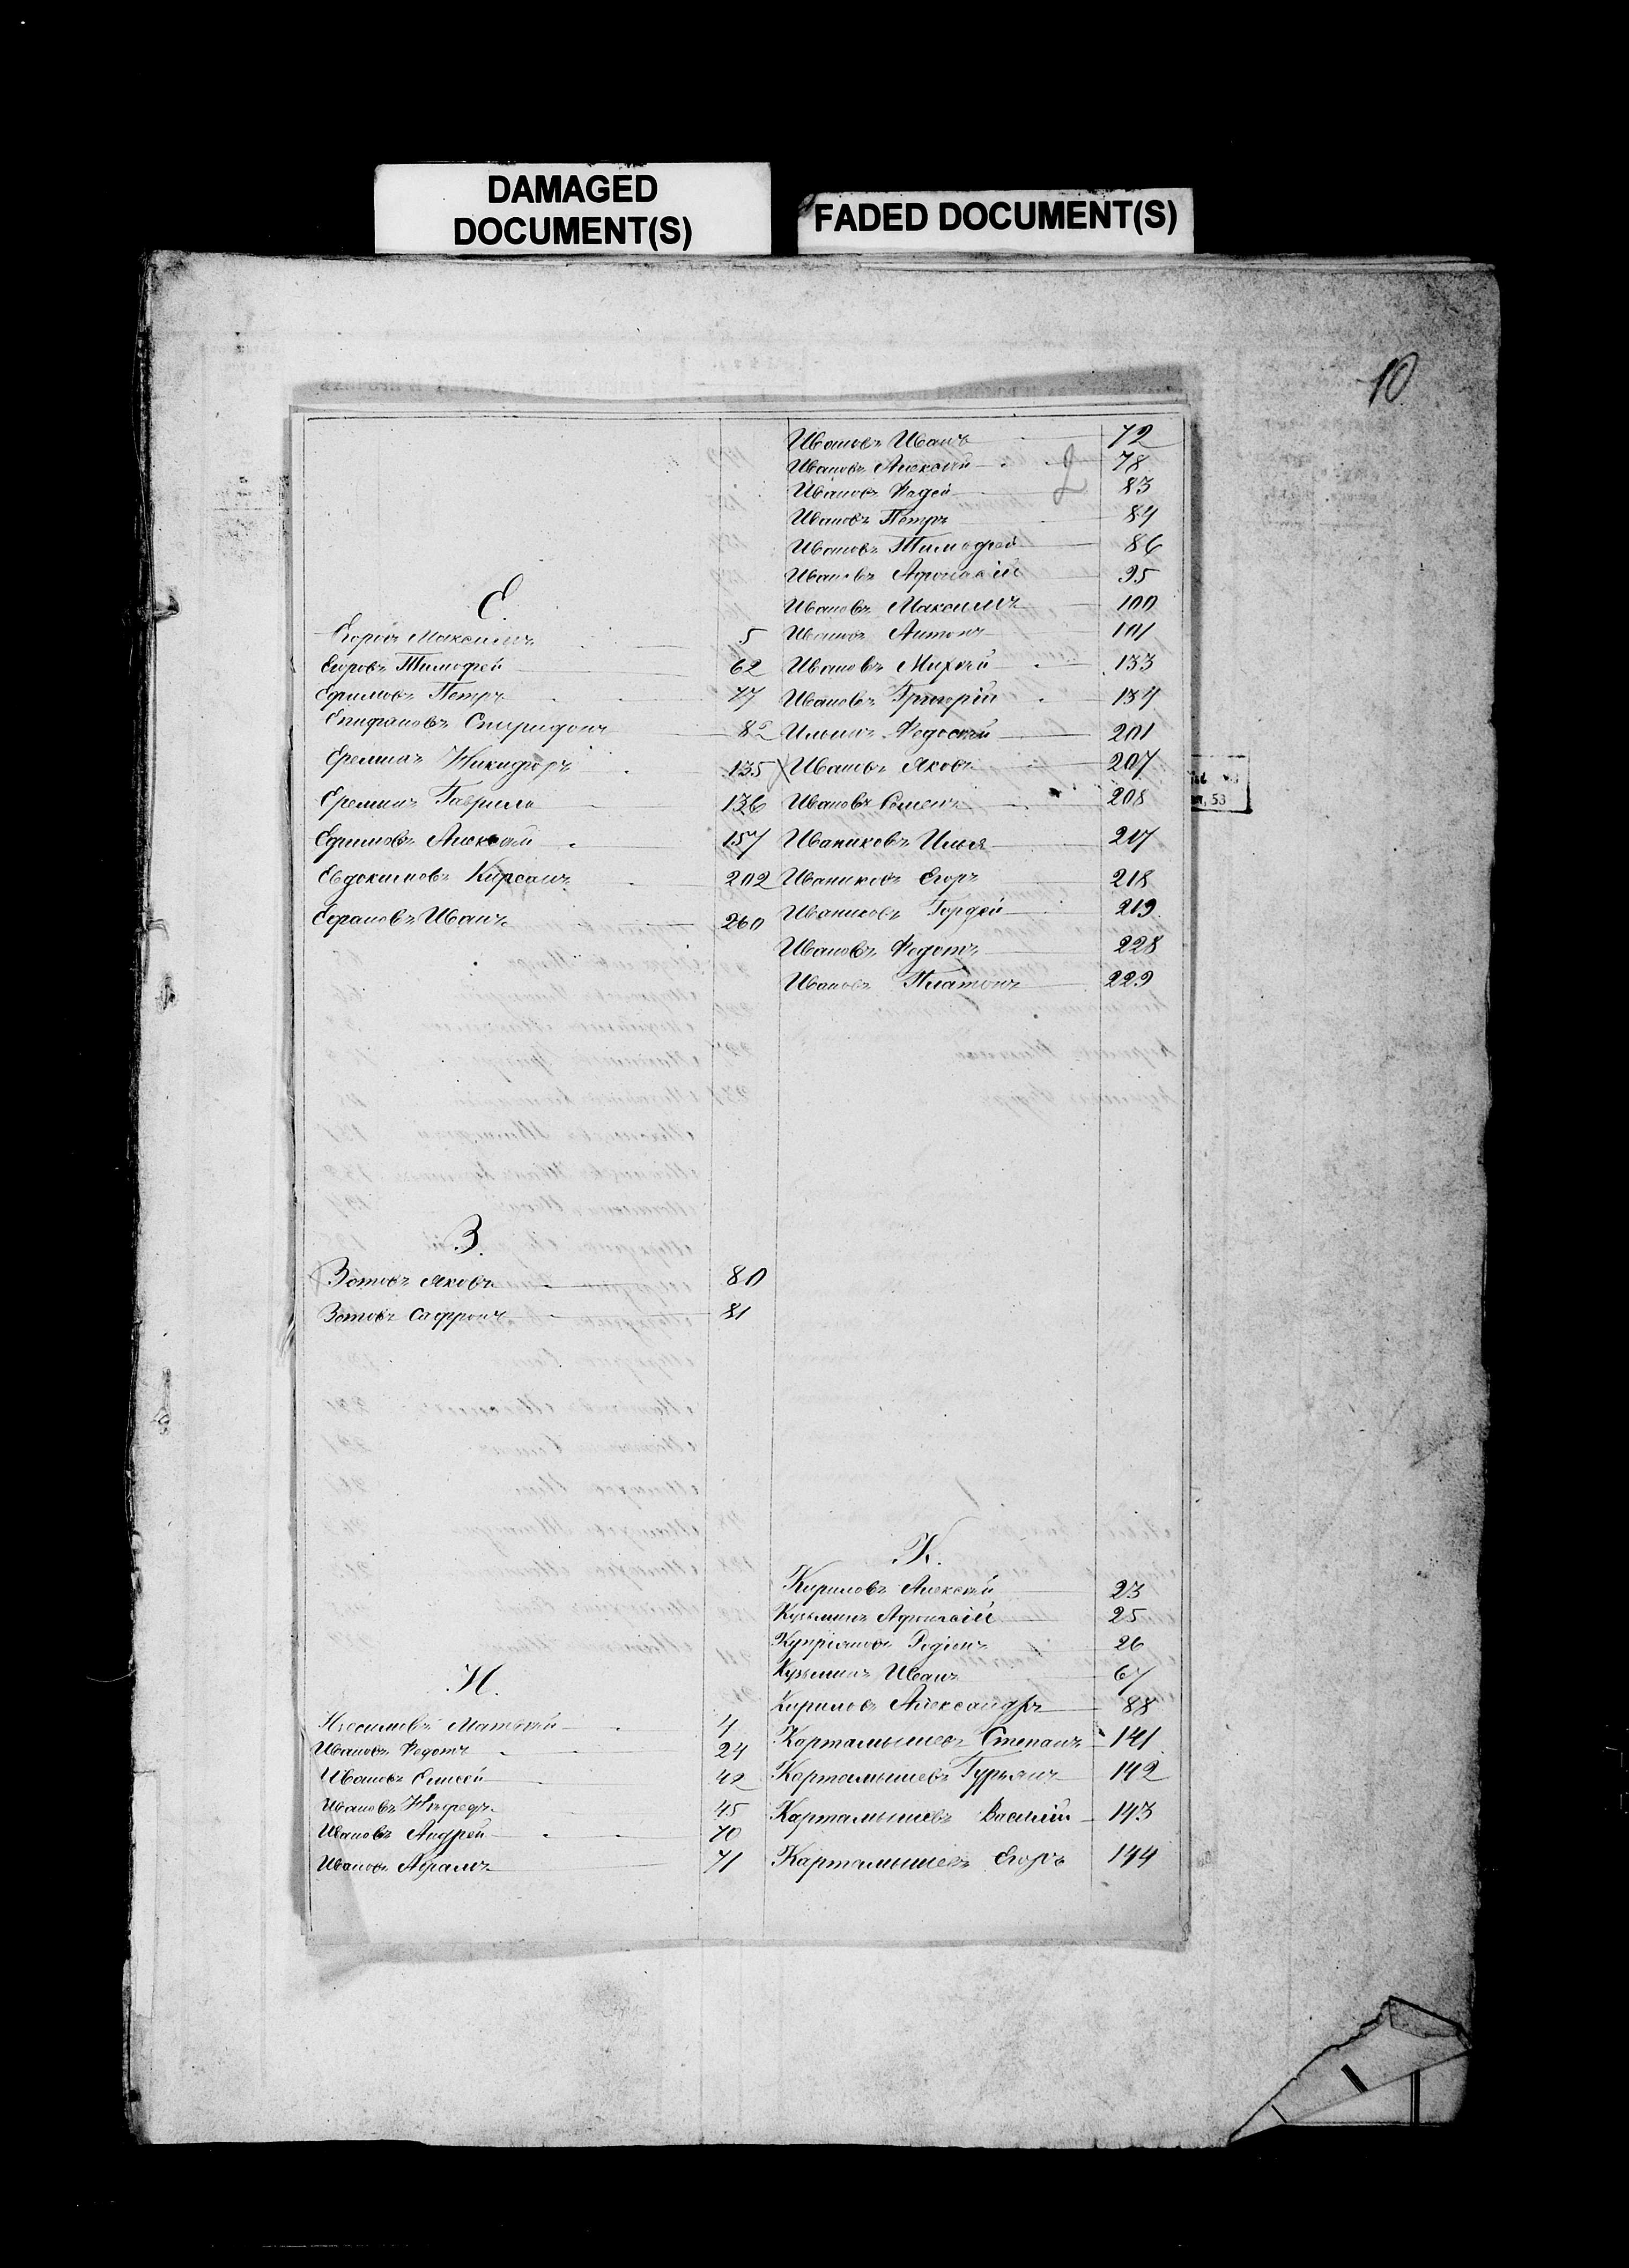 DAMAGED
DOCUMENT(S)
FADED DOCUMENT(S)
10
Е.
Егоровъ Максимъ 5
Егоровъ Тимофей 62
Ефимовъ Петръ 77
Епифановъ Спиридонъ 82
Ереминъ Никифоръ 135
Ереминъ Гаврила 136
Ефимовъ Алексѣй 157
Евдокимовъ Кирсанъ 202
Иванъ 260
З.
Зотовъ Яковъ 80
Зотовъ Сафронъ 81
И.
Матвѣй 4
Ивановъ Федотъ 24
Ивановъ Елисей 42
Ивановъ 45
Ивановъ Андрей 70
Ивановъ Абрамъ 71
Ивановъ Иванъ 72
Ивановъ Алексѣй 78
Ивановъ Фадей 83
Ивановъ Петръ 84
Ивановъ Тимофей 86
Ивановъ Афонасій 95
Ивановъ Максимъ 100
Ивановъ Антонъ 101
Ивановъ Михѣй 133
Ивановъ Григорій 134
Ильинъ Федосѣй 201
Ивановъ Яковъ 207
Ивановъ Семенъ 208
Иваниковъ Илья 217
Иваниковъ Егоръ 218
Иваниковъ Гордѣй 219
Ивановъ Федотъ 228
Ивановъ Платонъ 229
К.
Кириловъ Алексѣй 23
Кузьминъ Афонасій 25
Купріяновъ Родіонъ 26
Кузьминъ Иванъ 67
Кириловъ Александръ 88
Картамышевъ Степанъ 141
Картамышевъ Гурьянъ 142
Картамышевъ Василій 143
Картамышевъ Егоръ 144
53